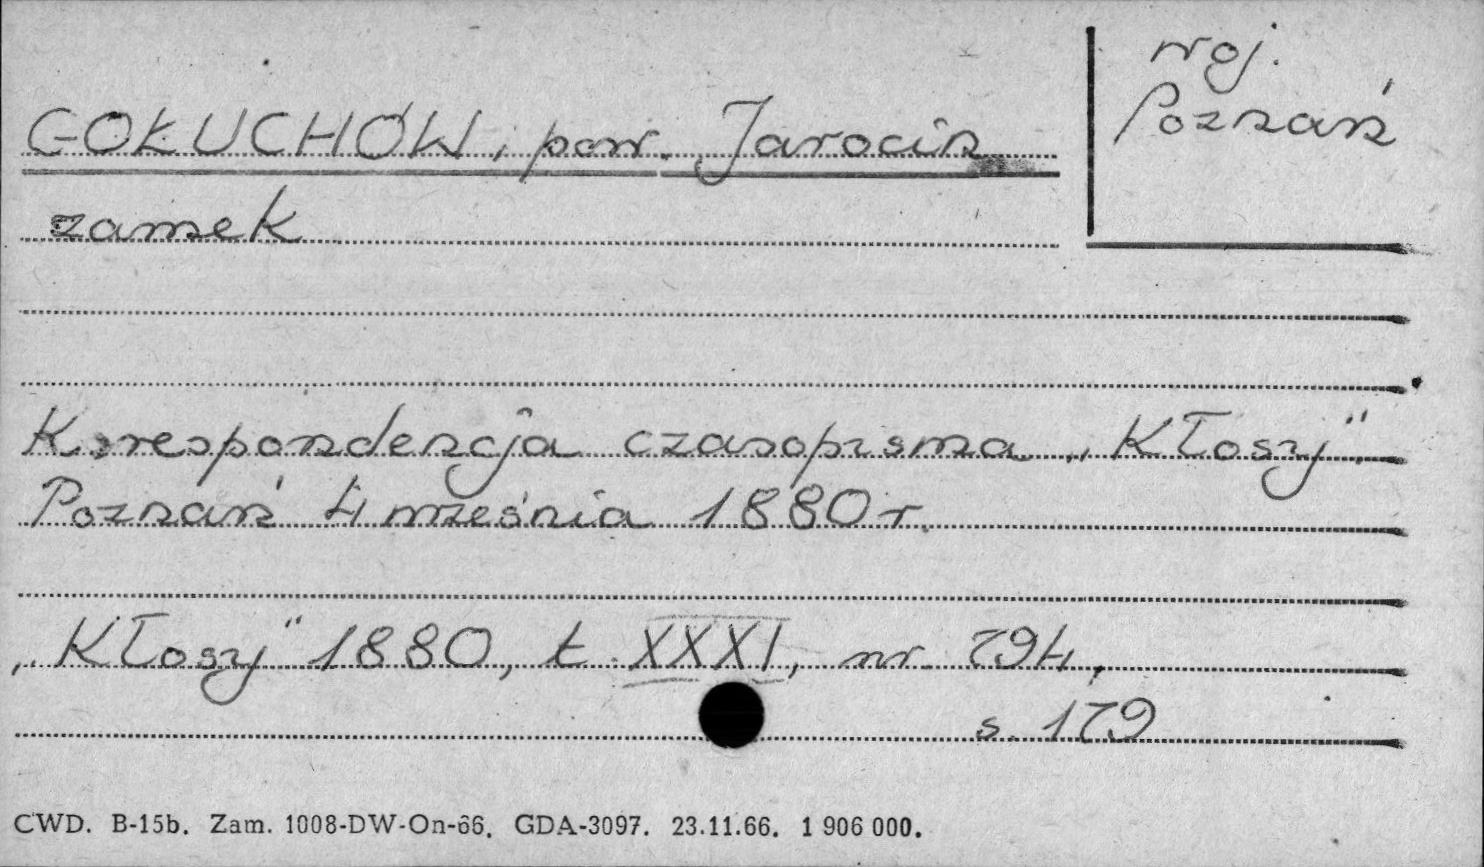 GOŁUCHÓW, pow. Jarocin
woj.
Poznań
zamek
Korespondencja czasopisma „Kłosy".
Poznań 4 września 1880 r.
„Kłosy" 1880, t. XXXI, nr. 794,
s. 179
CWD. B-15b. Zam. 1008-DW-On-66. GDA-3097. 23.11.66. 1 906 000.